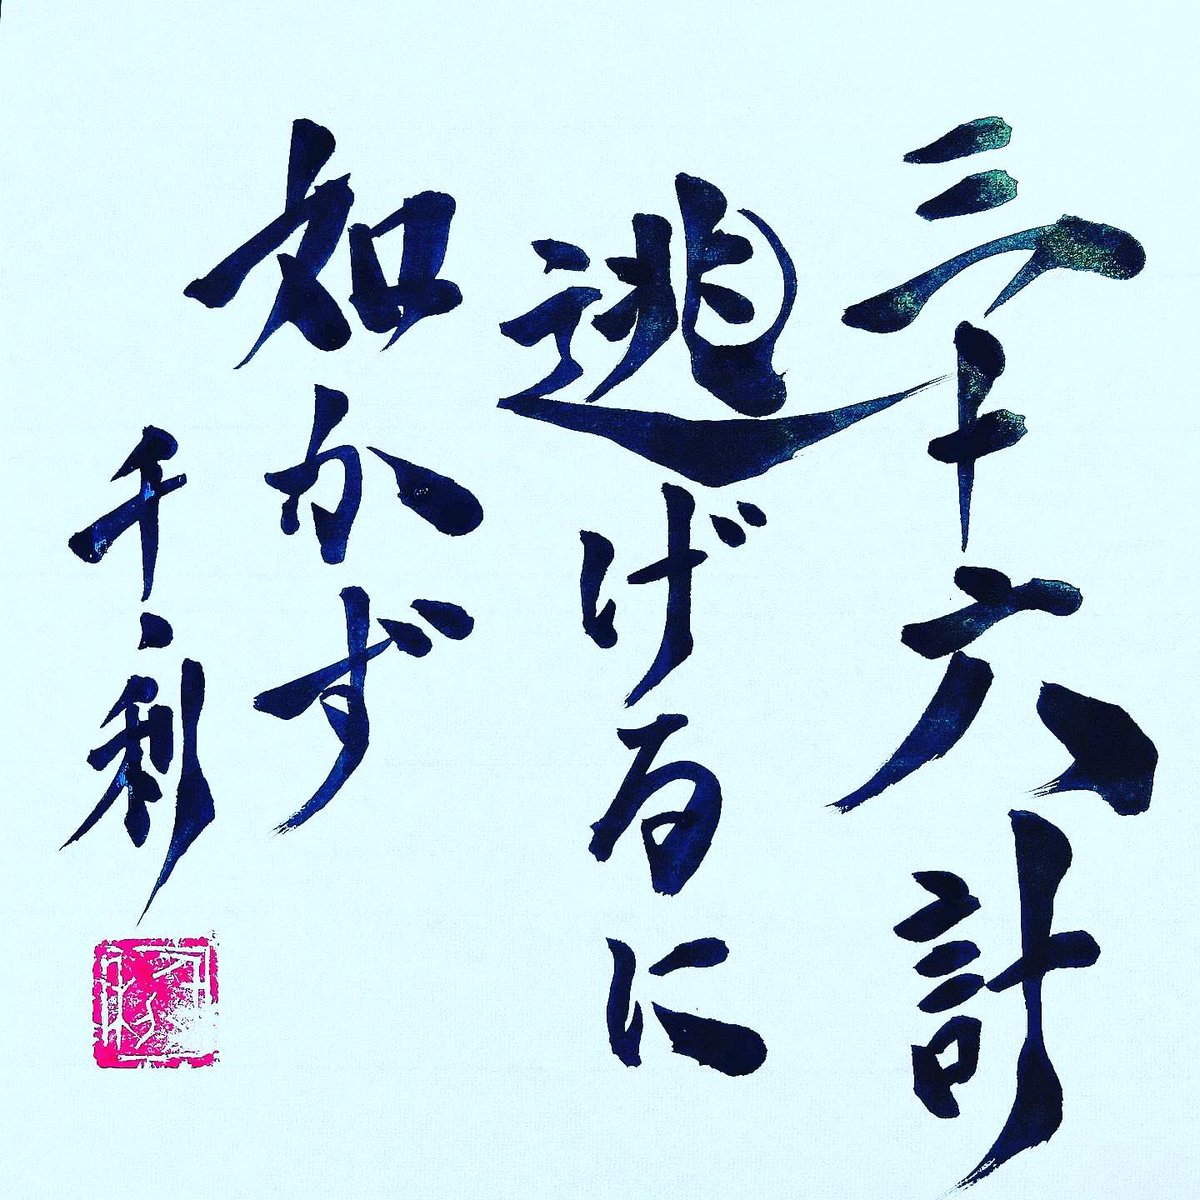 三十六計
逃げるに
如かず
千利